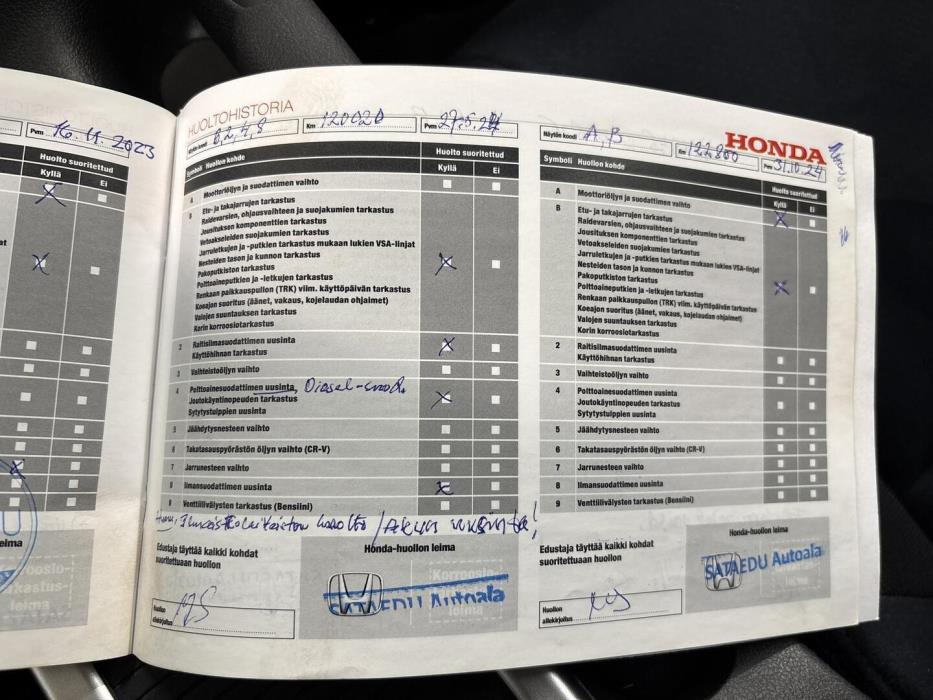 Pvm 16.11.2023
Huolto suoritettu
Kyllä Ei
HUOLTOHISTORIA
Näytön koodi B,2,4,8 Km 120020 Pvm 27.5.24
Symboli Huollon kohde Huolto suoritettu
Kyllä Ei
A Moottoriöljyn ja suodattimen vaihto
B Etu- ja takajarrujen tarkastus
Raidevarsien, ohjausvaihteen ja suojakumien tarkastus
Jousituksen komponenttien tarkastus
Vetoakseleiden suojakumien tarkastus
Jarruletkujen ja -putkien tarkastus mukaan lukien VSA-linjat
Nesteiden tason ja kunnon tarkastus
Pakoputkiston tarkastus
Polttoaineputkien ja -letkujen tarkastus
Renkaan paikkauspullon (TRK) viim. käyttöpäivän tarkastus
Koeajon suoritus (äänet, vakaus, kojelaudan ohjaimet)
Valojen suuntauksen tarkastus
Korin korroosiotarkastus
2 Raitisilmasuodattimen uusinta
Käyttöhihnan tarkastus
3 Vaihteistoöljyn vaihto
4 Polttoainesuodattimen uusinta, Diesel-suod.
Joutokäyntinopeuden tarkastus
Sytytystulppien uusinta
5 Jäähdytysnesteen vaihto
6 Takatasauspyörästön öljyn vaihto (CR-V)
7 Jarrunesteen vaihto
8 Ilmansuodattimen uusinta
9 Venttiilivälysten tarkastus (Bensiini)
huolto / Akun uusinta!
Edustaja täyttää kaikki kohdat
suoritettuaan huollon
Honda-huollon leima
Korroosio-
tarkastus-
leima
SATAEDU Autoala
Huollon
allekirjoitus
HONDA
Näytön koodi A, B Km 122800 Pvm 31.10.24
Symboli Huollon kohde Huolto suoritettu
Kyllä Ei
A Moottoriöljyn ja suodattimen vaihto
B Etu- ja takajarrujen tarkastus
Raidevarsien, ohjausvaihteen ja suojakumien tarkastus
Jousituksen komponenttien tarkastus
Vetoakseleiden suojakumien tarkastus
Jarruletkujen ja -putkien tarkastus mukaan lukien VSA-linjat
Nesteiden tason ja kunnon tarkastus
Pakoputkiston tarkastus
Polttoaineputkien ja -letkujen tarkastus
Renkaan paikkauspullon (TRK) viim. käyttöpäivän tarkastus
Koeajon suoritus (äänet, vakaus, kojelaudan ohjaimet)
Valojen suuntauksen tarkastus
Korin korroosiotarkastus
2 Raitisilmasuodattimen uusinta
Käyttöhihnan tarkastus
3 Vaihteistoöljyn vaihto
4 Polttoainesuodattimen uusinta
Joutokäyntinopeuden tarkastus
Sytytystulppien uusinta
5 Jäähdytysnesteen vaihto
6 Takatasauspyörästön öljyn vaihto (CR-V)
7 Jarrunesteen vaihto
8 Ilmansuodattimen uusinta
9 Venttiilivälysten tarkastus (Bensiini)
Edustaja täyttää kaikki kohdat
suoritettuaan huollon
Honda-huollon leima
SATAEDU Autoala
Huollon
allekirjoitus